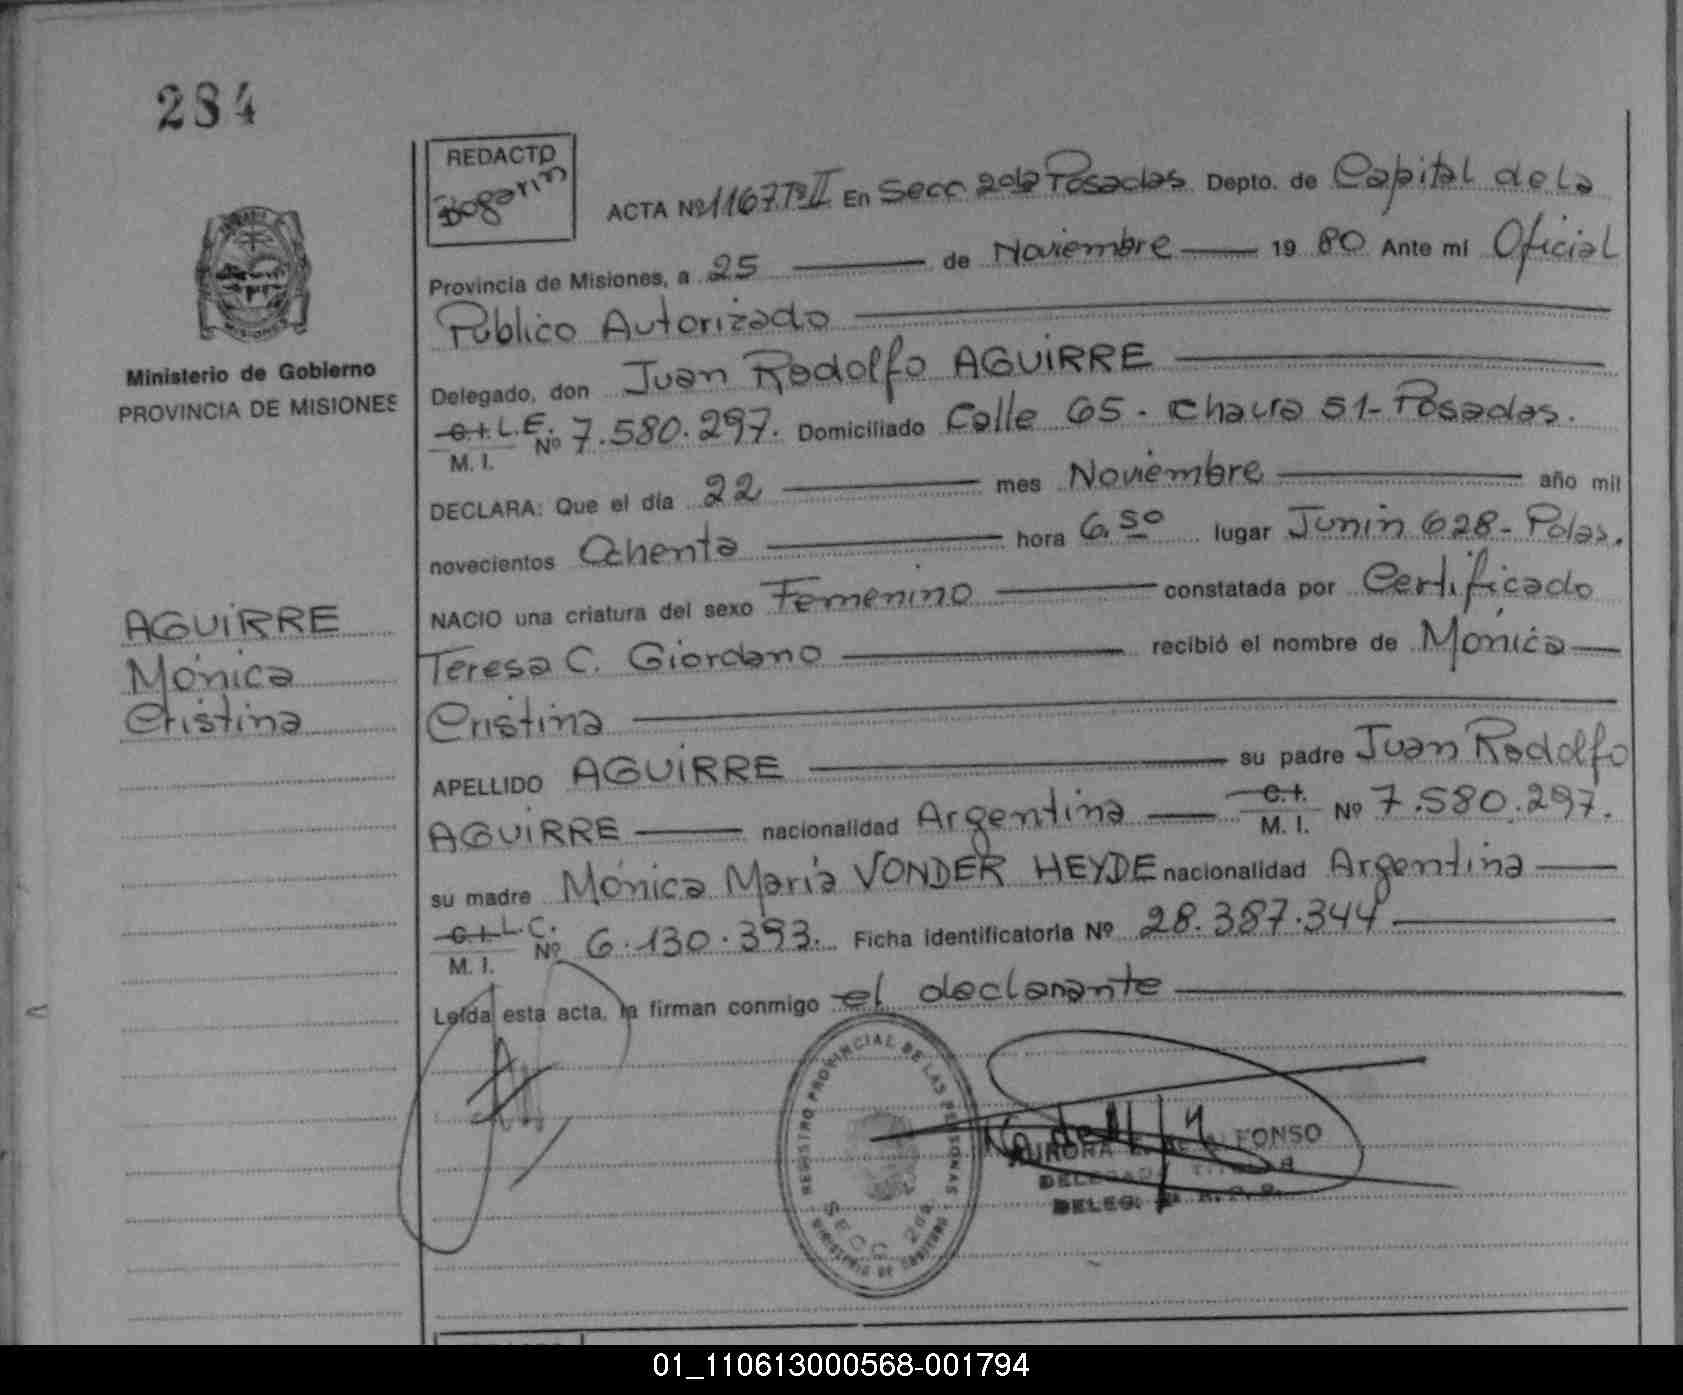 284
REDACTO
Bogarin
ACTA Nº 1167 Tº II En Secc 2da Posadas Depto. de Capital de la
Provincia de Misiones, a 25 de Noviembre 19 80 Ante mi Oficial
Público Autorizado
Delegado, don Juan Rodolfo AGUIRRE
C.I. L.E. M. I. Nº 7.580.297. Domiciliado Calle 65 - Chacra 51 - Posadas.
DECLARA: Que el día 22 mes Noviembre año mil
novecientos Ochenta hora 6,50 lugar Junin 628 - Pdas.
NACIO una criatura del sexo Femenino constatada por Certificado
Teresa C. Giordano recibió el nombre de Mónica
Cristina
APELLIDO AGUIRRE su padre Juan Rodolfo
AGUIRRE nacionalidad Argentina C.I. M. I. Nº 7.580.297.
su madre Mónica María VONDER HEYDE nacionalidad Argentina
C.I. L.C. M. I. Nº 6.130.393. Ficha identificatoria Nº 28.387.344
Leída esta acta, la firman conmigo el declarante
Ministerio de Gobierno
PROVINCIA DE MISIONES
AGUIRRE
Mónica
Cristina
REGISTRO PROVINCIAL DE LAS PERSONAS
SECC. 2da
MINISTERIO DE GOBIERNO
AURORA
DELEGADA TITULAR
DELEG.
MISIONES
01_110613000568-001794